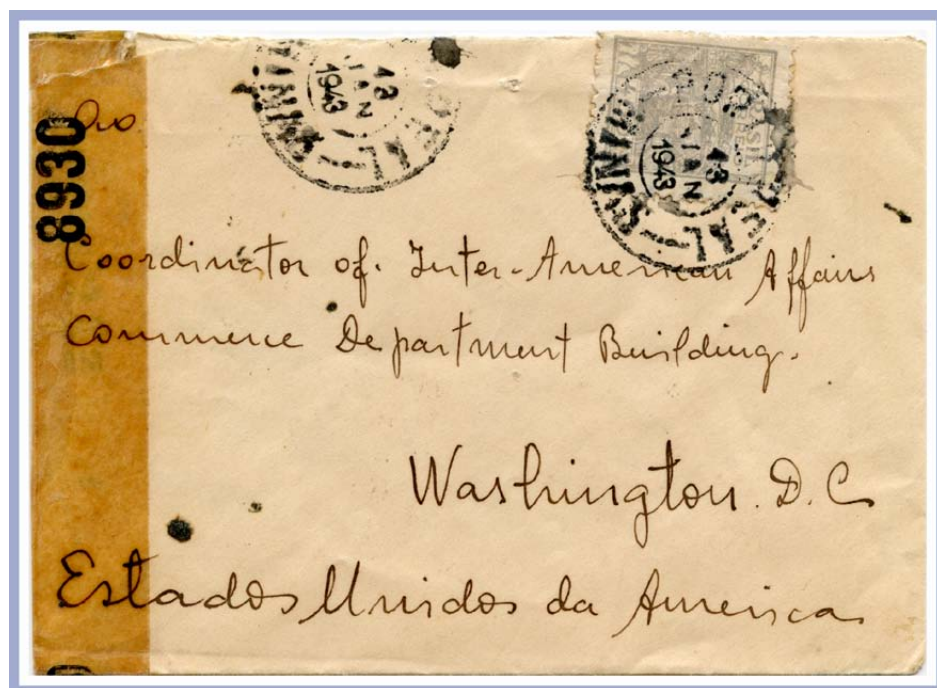 8930
Ao
13
JAN
1943
13
JAN
1943
Coordinator of. Inter-American Affairs
Commerce Department Building.
Washington. D.C
Estados Unidos da America